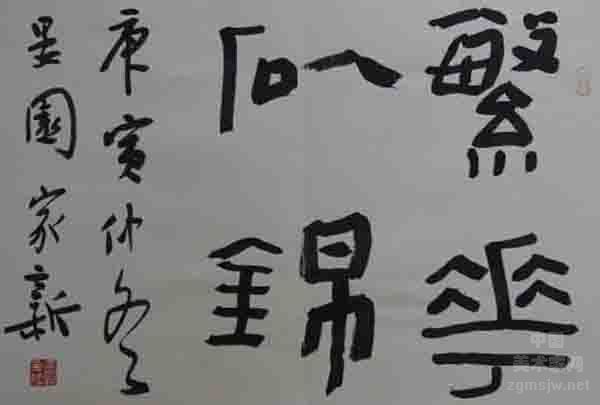 繁華
似錦
庚寅仲冬
園家新
中国
美术家网
zgmsjw.net